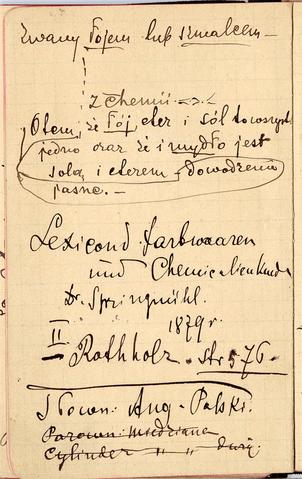 zwany łojem lub szmalcem —
z Chemii
O tem, że łój, eter i sól to wszystko
jedno oraz że i mydło jest
solą i eterem, dowodzenie
jasne. —
Lexicon d. Farbwaaren
und Chemicalienkunde
Dr. Springmühl.
1879 r.
II
— Rothholz — str 576 —
Słown. Ang-Polski.
Parown. miedziana
Cylinder " " duży.